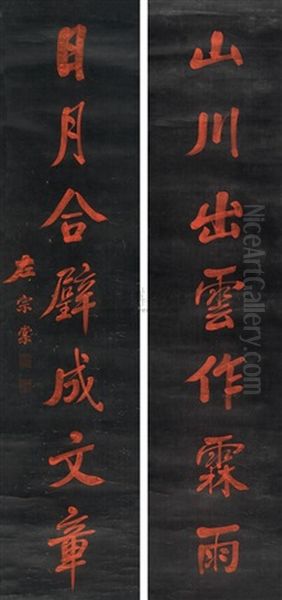 山川出雲作霖雨
日月合璧成文章
左宗棠
NiceArtGallery.com